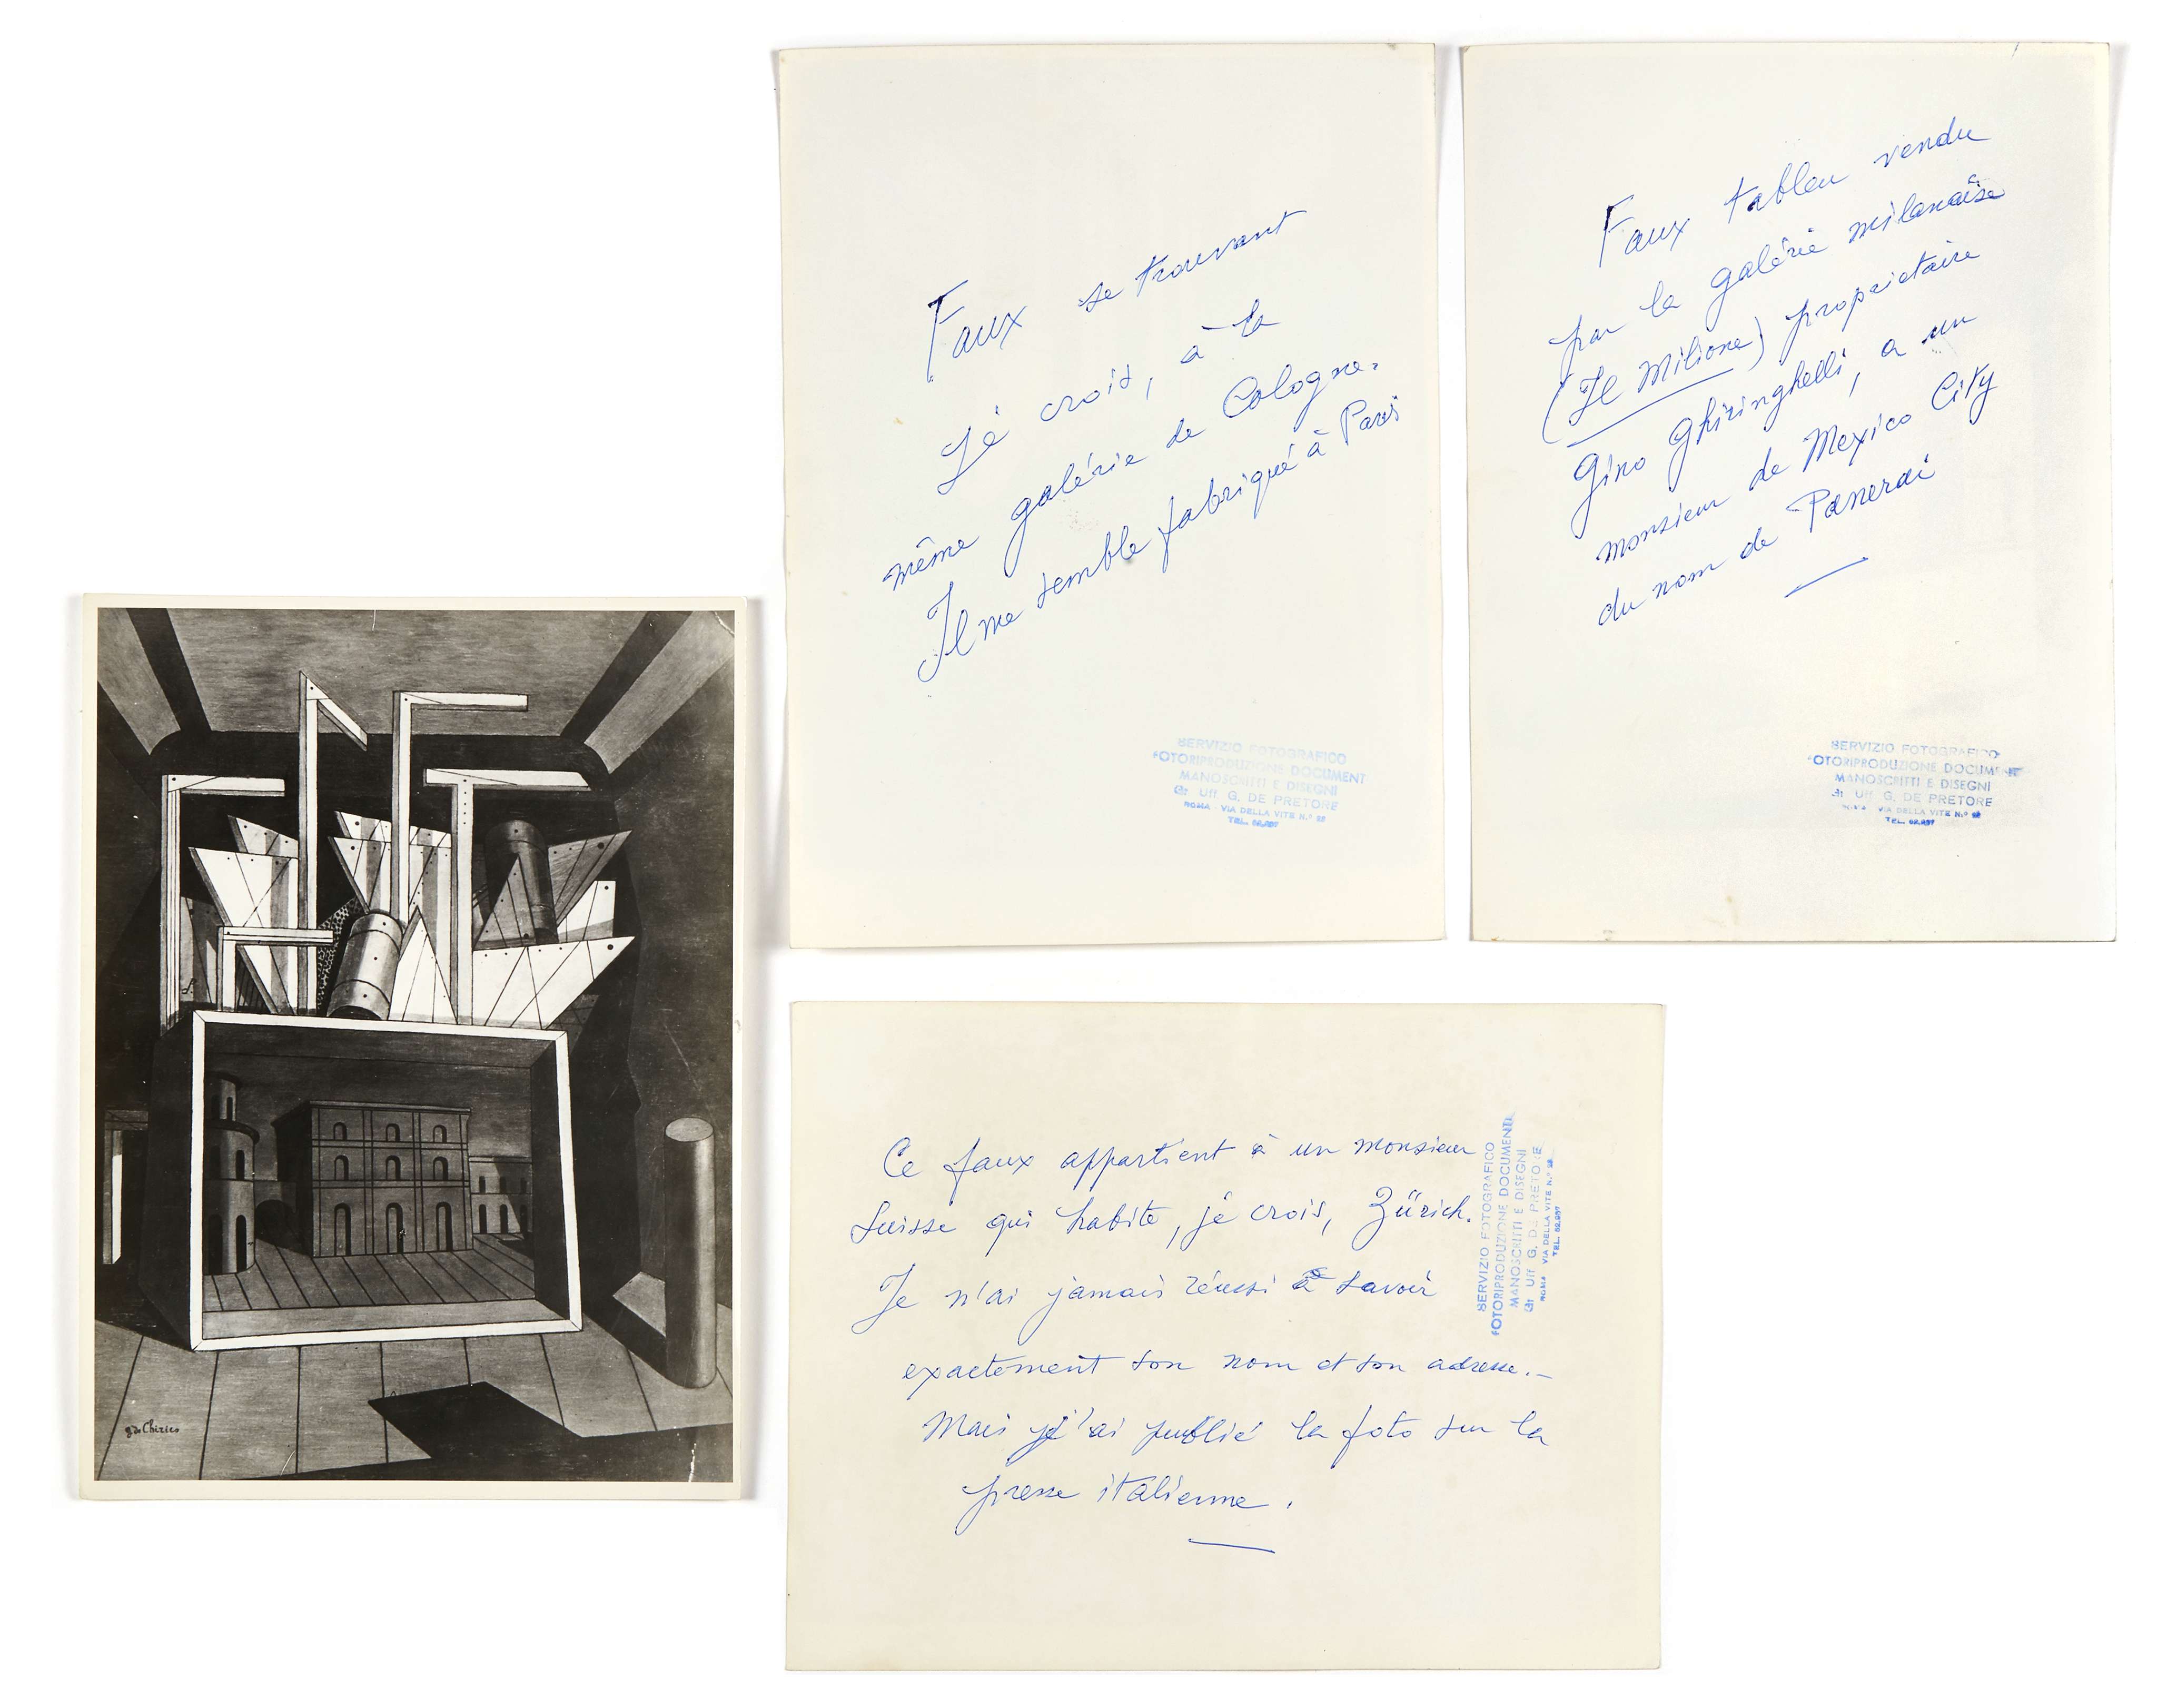 Faux se trouvant
jé crois, à la
même galérie de Cologne.
Il me semble fabriqué à Paris
SERVIZIO FOTOGRAFICO
FOTORIPRODUZIONE DOCUMENT
MANOSCRITTI E DISEGNI
Gr Uff. G. DE PRETORE
ROMA - VIA DELLA VITE N.º
TEL.
Faux tableu vendu
par la galérie milanaîse
(Il Milione) proprietaire
Gino Ghiringhelli, a un
monsieur de Mexico City
du nom de Panerai
SERVIZIO FOTOGRAFICO
OTORIPRODUZIONE DOCUMENT
MANOSCRITTI E DISEGNI
Gr Uff G. DE PRETORE
ROMA - VIA DELLA VITE N.º
TEL.
g. de Chirico
Ce faux appartient à un monsieur
Suisse qui habite, jé crois, Zürich.
Je n'ai jamais réussi à savoir
exactement son nom et son adresse.—
Mais j'ai publié la foto sur la
presse italienne.
SERVIZIO FOTOGRAFICO
FOTORIPRODUZIONE DOCUMENTI
MANOSCRITTI E DISEGNI
Gr Uff G. DE PRETORE
ROMA - VIA DELLA VITE N.º
TEL.